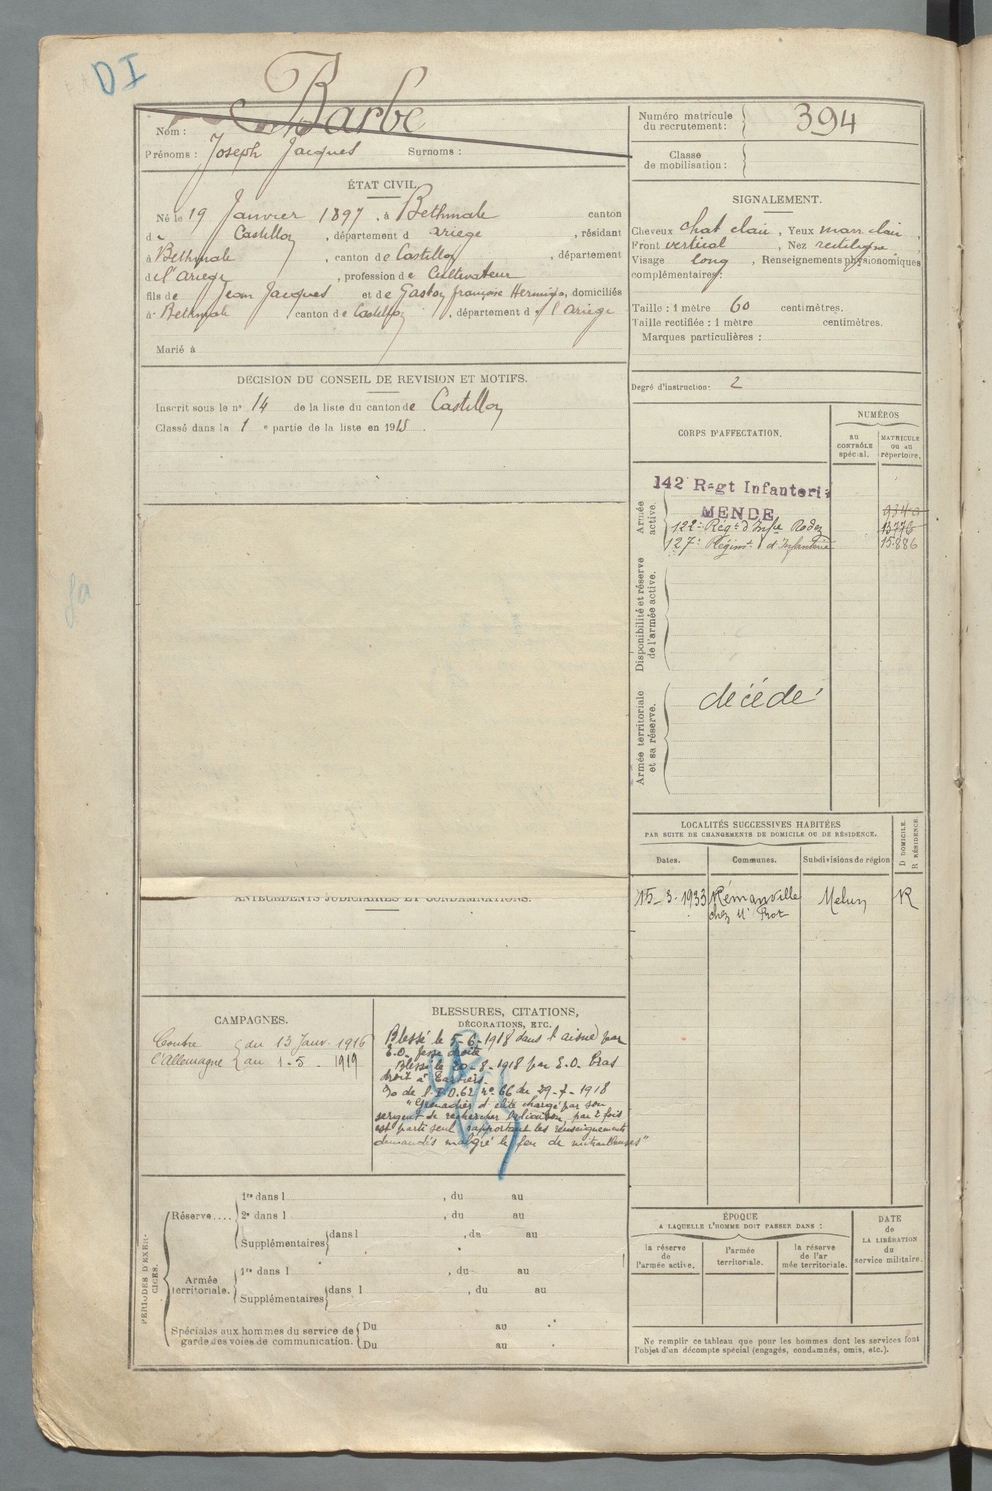 DI
Barbe
Nom :
Prénoms : Joseph Jacques Surnoms :
Numéro matricule
du recrutement : 394
Classe
de mobilisation :
ÉTAT CIVIL.
Né le 19 Janvier 1897, à Bethmale canton
de Castillon, département d ariege, résidant
à Bethmale, canton de Castillon, département
de l'Ariege, profession de Cultivateur
fils de Jean Jacques et de Gaston françoise Herminie, domiciliés
à Bethmale canton de Castillon, département de l'Ariege
Marié à
SIGNALEMENT.
Cheveux chat clair, Yeux marr clair,
Front vertical, Nez rectiligne,
Visage long, Renseignements physionomiques
complémentaires :
Taille : 1 mètre 60 centimètres.
Taille rectifiée : 1 mètre centimètres.
Marques particulières :
Degré d'instruction : 2
DÉCISION DU CONSEIL DE REVISION ET MOTIFS.
Inscrit sous le n° 14 de la liste du canton de Castillon
Classé dans la 1 e partie de la liste en 1915.
CORPS D'AFFECTATION.
NUMÉROS
AU
CONTRÔLE
spécial.
MATRICULE
OU AU
répertoire.
Armée
active.
142 Regt Infanterie
MENDE
122e Régt d'Infie Rodez 13776
127e Régimt d'Infanterie 15886
Disponibilité et réserve
de l'armée active.
Armée territoriale
et sa réserve.
décédé
ANTÉCÉDENTS JUDICIAIRES ET CONDAMNATIONS.
LOCALITÉS SUCCESSIVES HABITÉES
PAR SUITE DE CHANGEMENTS DE DOMICILE OU DE RÉSIDENCE.
D DOMICILE.
R RÉSIDENCE.
Dates. Communes. Subdivisions de région
15-3-1933 Rémauville Melun R
chez Mr Prot
CAMPAGNES.
Contre du 13 Janv. 1916
l'Allemagne au 1-5-1919
BLESSURES, CITATIONS,
DÉCORATIONS, ETC.
Blessé le 5-6-1918 dans l'aisne par
E.O. fesse droite
Blessé le 20-8-1918 par E.O. Bras
droit à
O de 62 n° 66 du 29-7-1918
"Grenadier d'élite chargé par son
sergent de rechercher liaison, par 2 fois
est parti seul, rapportant les renseignements
demandés malgré le feu de mitrailleuses"
PÉRIODES D'EXERCICES.
Réserve....
1re dans l , du au
2e dans l , du au
Supplémentaires dans l , du au
Armée
territoriale.
1re dans l , du au
Supplémentaires dans l , du au
Spéciales aux hommes du service de
garde des voies de communication.
Du au
Du au
ÉPOQUE
A LAQUELLE L'HOMME DOIT PASSER DANS :
la réserve
de l'armée active.
l'armée
territoriale.
la réserve
de l'ar
mée territoriale.
DATE
de
LA LIBÉRATION
du
service militaire.
Ne remplir ce tableau que pour les hommes dont les services font
l'objet d'un décompte spécial (engagés, condamnés, omis, etc.).